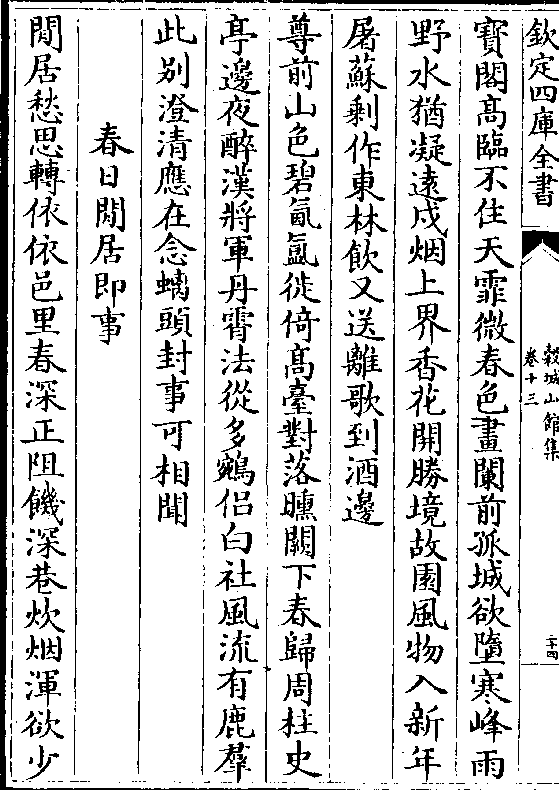 欽定四庫全書
穀城山館集
卷十三
二十四
寶閣髙臨不住天霏微春色畫闌前孤城欲墮寒峰雨
野水猶凝逺戍烟上界香花開勝境故園風物入新年
屠蘇剰作東林飲又送離歌到酒邊
尊前山色碧氤氲徙倚髙臺對落曛闕下春歸周柱史
亭邊夜醉漢將軍丹霄法從多鵷侣白社風流有鹿羣
此别澄清應在念螭頭封事可相聞
春日閒居即事
閒居愁思轉依依邑里春深正阻饑深巷炊烟渾欲少